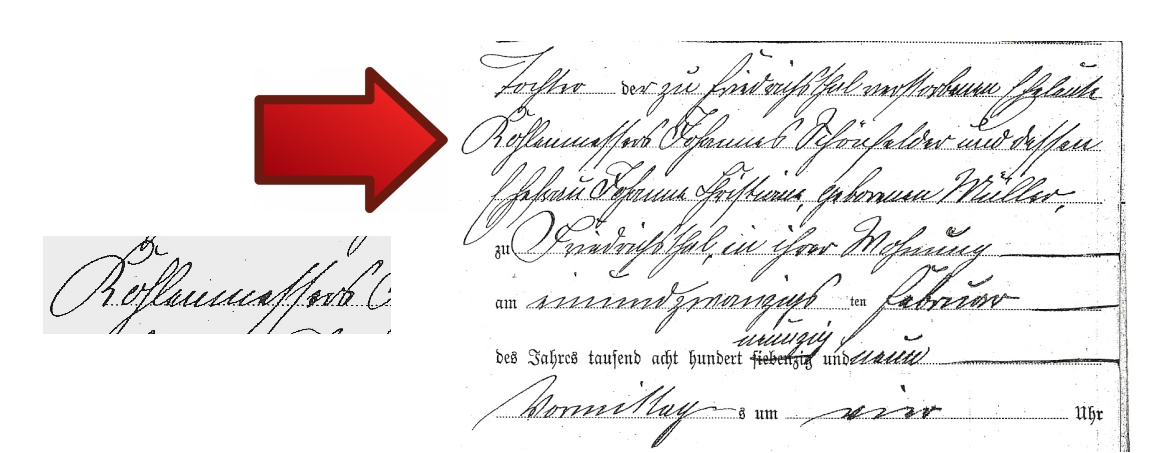 Tochter der zu Friedrichsthal verstorbenen Eheleute
Kohlenmessers Johannes Schönfelder und dessen
Ehefrau Johanne Christiane, geborenen Müller,
zu Friedrichsthal, in ihrer Wohnung
am einundzwanzigs ten Februar
neunzig
des Jahres tausend acht hundert siebenzig und neun
Vormittag s um vier Uhr
Kohlenmessers